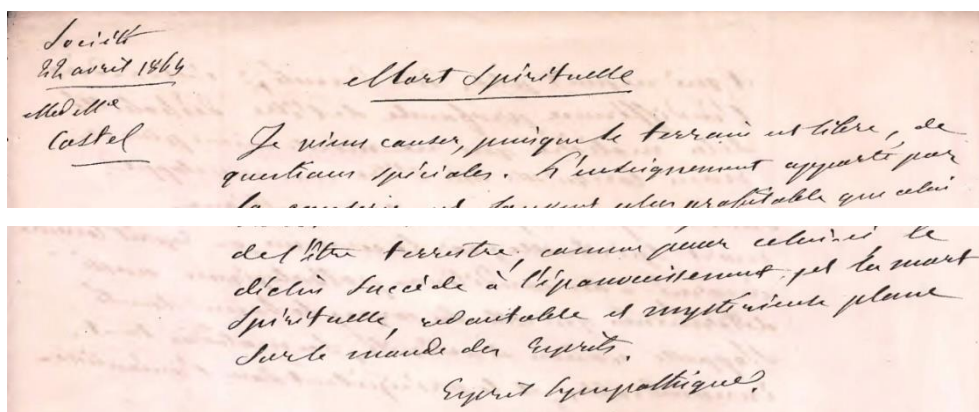 Société
22 avril 1864
Med Mme
Costel
Mort Spirituelle
Je viens causer, puisque le terrain est libre, de
questions spéciales. L'enseignement apporté par
la causerie est souvent plus profitable que celui
de l'être terrestre, comme pour celui-ci le
déclin succède à l'épanouissement, et la mort
Spirituelle, redoutable et mystérieuse plane
sur le monde des Esprits.
Esprit Sympathique.